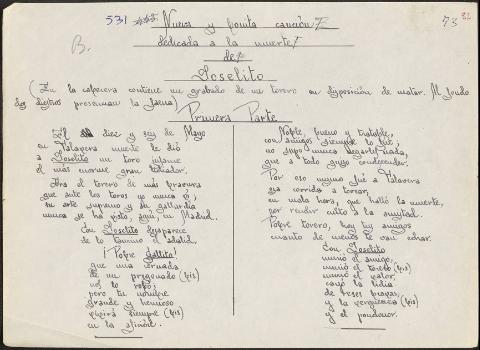 531
73
B.
Nueva y bonita canción
dedicada a la muerte
de
Joselito
(En la cabecera contiene un grabado de un torero en disposición de matar. Al fondo
dos diestros presencian la faena)
Primera Parte
El diez y seis de Mayo
en Talavera muerte le dió
a Joselito un toro infame
el más enorme gran lidiador.
Era el torero de más bravura
que ante los toros yo nunca ví;
su arte supremo y su gallardía
nunca se ha visto, aquí en Madrid.
Con Joselito desaparece
de lo taurino el
¡Pobre Gallito!
que una cornada
de un pregonado (bis)
nos lo robó;
pero tu nombre
grande y hermoso
vivirá siempre (bis)
en la afición.
Noble, bueno y tratable,
con amigos siempre lo fué;
no supo nunca negarles nada,
que a todo quiso condescender.
Por eso mismo fué a Talavera
esa corrida a torear,
en mala hora, que halló la muerte,
por rendir culto a la amistad.
Pobre torero, hoy tus amigos
cuanto de menos te van echar.
Con Joselito
murió el amigo,
murió el torero (bis)
murió el valor,
cayó la lidia
de reses bravas,
y la vergüenza (bis)
y el pundonor.